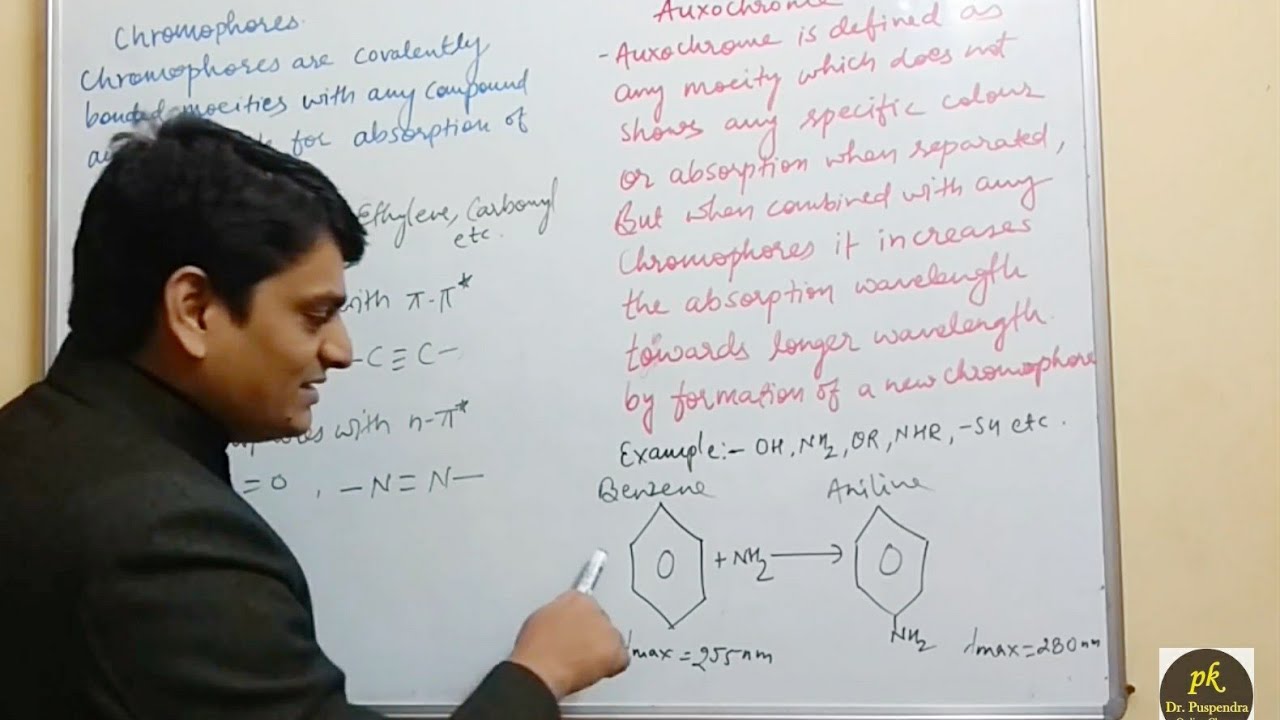 Chromophores.
Chromophores are covalently
bonded mocities with any compound
for absorption of
Ethylene, Carbonyl
etc.
with π-π*
-C≡C-
with n-π*
=O, -N=N-
Auxochrome
- Auxochrome is defined as
any mocity which does not
shows any specific colour
or absorption when separated,
But when combined with any
Chromophores it increases
the absorption wavelength
towards longer wavelength.
by formation of a new chromophore
Example:- OH, NH2, OR, NHR, -SH etc.
Benzene Aniline
+ NH2 →
NH2
λmax = 255nm λmax = 280nm
pk
Dr. Puspendra